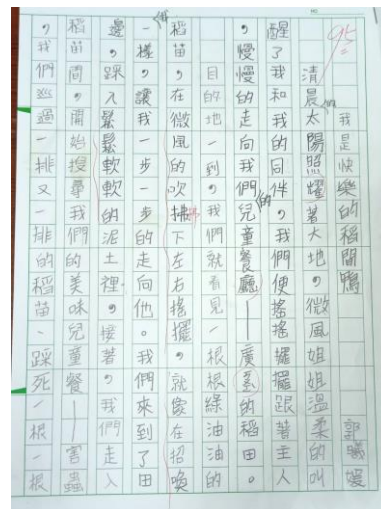 95
我是快樂的稻間鴨 郭
清晨的太陽照耀著大地,微風姐姐溫柔的叫
醒了我和我的同伴,我們便搖搖擺擺跟著主人
,慢慢的走向我們的兒童餐廳—廣系的稻田。
目的地一到我們就看見一根根綠油油的
稻苗,在微風的吹拂下左右搖擺,就像在招喚
一樣,讓我一步一步的走向他。我們來到了田
邊,踩入鬆鬆軟軟的泥土裡,接著,我們走入
稻苗間,開始搜尋我們的美味兒童餐—害蟲
,我們巡過一排又一排的稻苗、踩死一根一根